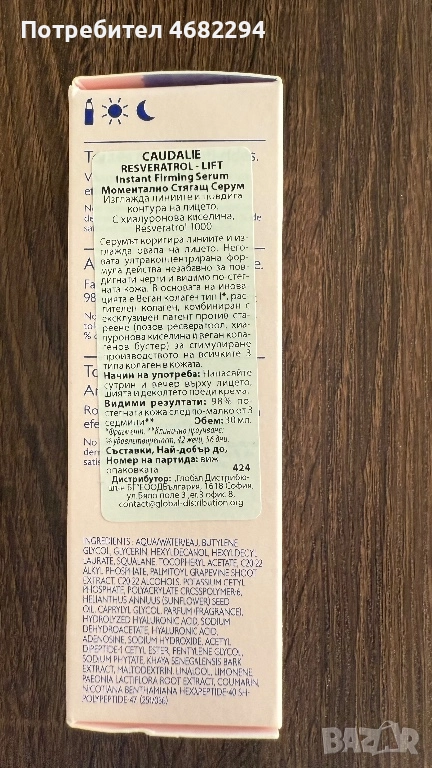 Потребител 4682294
CAUDALIE
RESVERATROL - LIFT
Instant Firming Serum
Моментално Стягащ Серум
Изглажда линиите и повдига
контура на лицето.
С хиалуронова киселина,
Resveratrol 1000
Серумът коригира линиите и из-
глажда овала на лицето. Него-
вата ултраконцентрирана фор-
мула действа незабавно за по-
вдигнати черти и видимо по-стег-
ната кожа. В основата на инова-
цията е Веган колаген тип I*, рас-
тителен колаген, комбиниран с
ексклузивен патент против ста-
реене (лозов ресвератрол, хиа-
луронова киселина и веган кола-
генов бустер) за стимулиране
производството на всичките 3
типа колаген в кожата.
Начин на употреба: Нанасяйте
сутрин и вечер върху лицето,
шията и деколтето преди крема.
Видими резултати: 98% по-
стегната кожа след по-малко от 3
седмици** Обем: 30 мл.
Съставки, Най-добър до,
Номер на партида: виж
опаковката 424
Дистрибутор: „Глобал Дистрибю-
шън БГ"ЕООДБългария, 1618 София,
ул.Бяло поле 3,ет.3 офис 8.
contact@global-distribution.org
INGREDIENTS: AQUA/WATER/EAU, BUTYLENE
GLYCOL, GLYCERIN, HEXYLDECANOL, HEXYLDECYL
LAURATE, SQUALANE, TOCOPHERYL ACETATE, C20-22
ALKYL PHOSPHATE, PALMITOYL GRAPEVINE SHOOT
EXTRACT, C20-22 ALCOHOLS, POTASSIUM CETYL
PHOSPHATE, POLYACRYLATE CROSSPOLYMER-6,
HELIANTHUS ANNUUS (SUNFLOWER) SEED
OIL, CAPRYLYL GLYCOL, PARFUM (FRAGRANCE),
HYDROLYZED HYALURONIC ACID, SODIUM
DEHYDROACETATE, HYALURONIC ACID,
ADENOSINE, SODIUM HYDROXIDE, ACETYL
DIPEPTIDE-1 CETYL ESTER, PENTYLENE GLYCOL,
SODIUM PHYTATE, KHAYA SENEGALENSIS BARK
EXTRACT, MALTODEXTRIN, LINALOOL, LIMONENE,
PAEONIA LACTIFLORA ROOT EXTRACT, COUMARIN,
NICOTIANA BENTHAMIANA HEXAPEPTIDE-40 SH-
POLYPEPTIDE-47 (251/036)
BAZAR